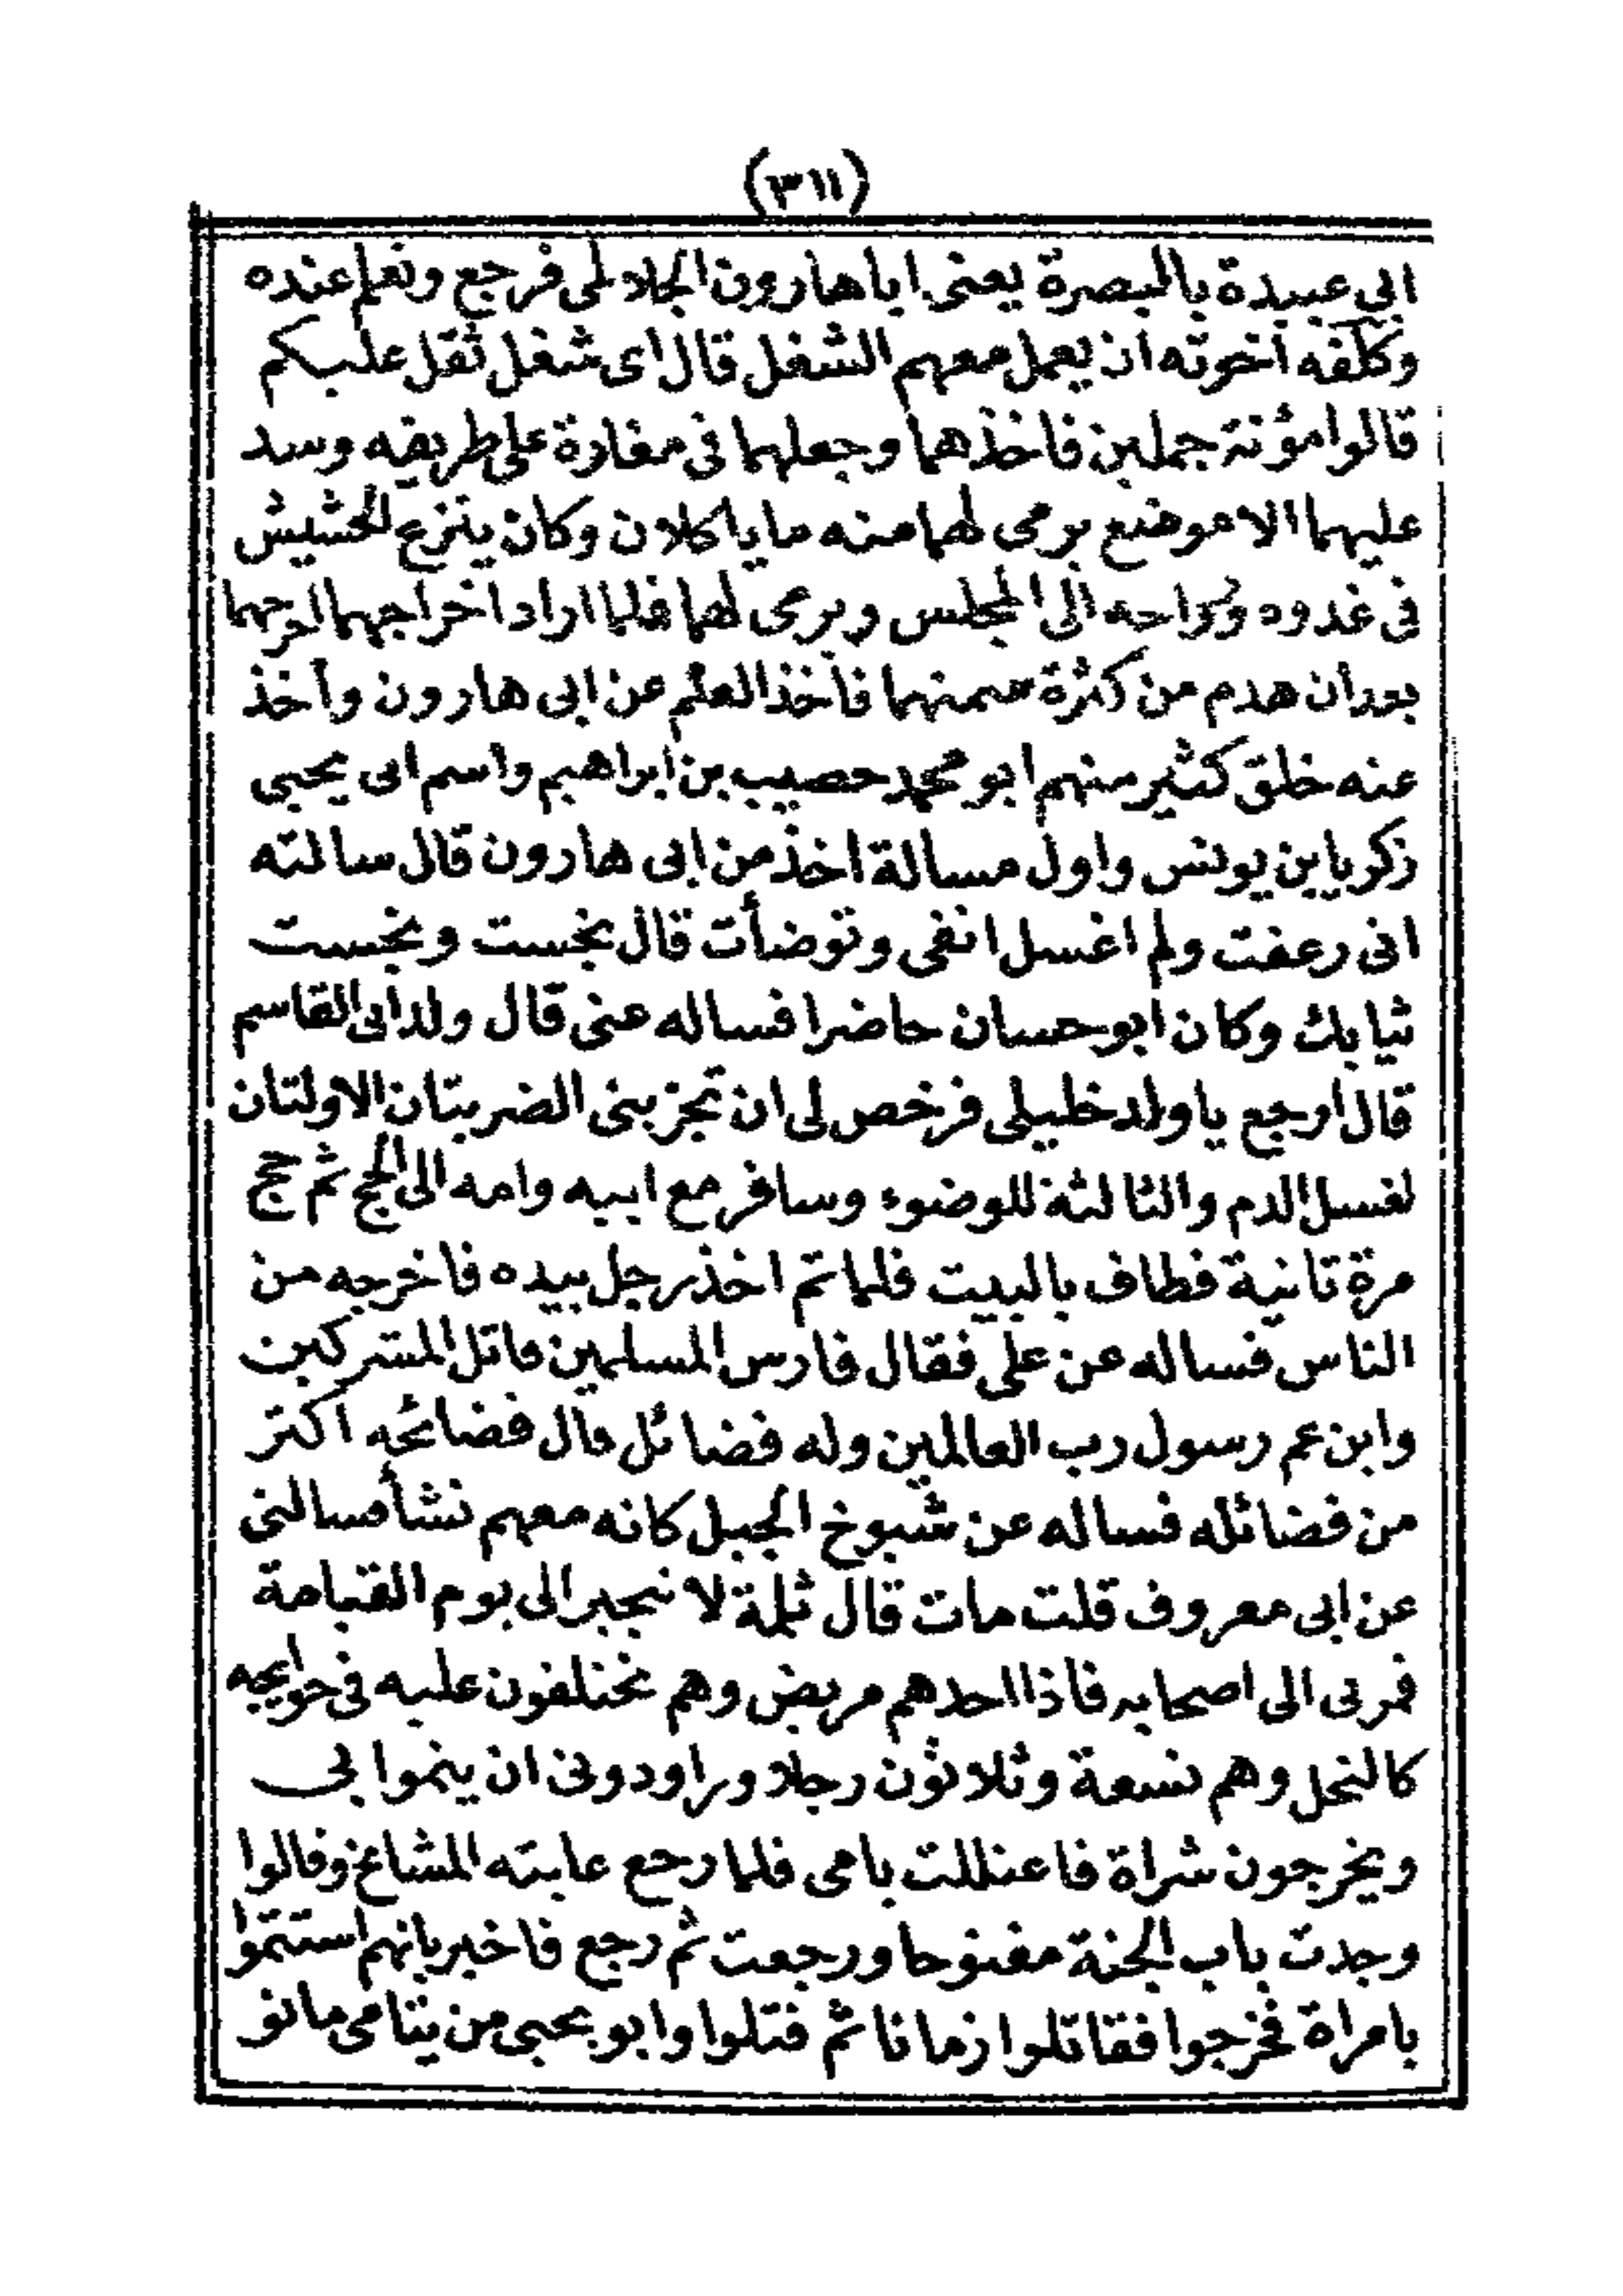 (٣١١)
ابى عبيدة بالبصرة يعنى ابا هارون الجلالمى فرجع وتعلم عنده
وكلفه اخوته ان يعمل معهم الشغل قال اى شغل ثقل عليكم
قالوا مؤنة جملين فاخذهما وجعلهما فى مغارة على طريقه وسد
عليهما الا موضع يرمى لهما منه ما ياكلان وكان ينزع الحشيش
فى غدوه ورواحه الى المجلس ويرمى لهما فلما اراد اخراجهما اخرجهما
بعد ان هدم من كثرة سمنهما فأخذ العلم عن ابى هارون وأخذ
عنه خلق كثير منهم ابو محمد خصيب بن ابراهيم واسم ابى يحيى
زكريا بن يونس واول مسالة اخذ من ابى هارون قال سالته
انى رعفت ولم اغسل انفى وتوضأت قال نجست ونجست
ثيابك وكان ابو حسان حاضرا فساله عنى قال ولد ابى القاسم
قال ارجع يا ولد خليلى فرخص لى ان تجزينى الضربتان الاولتان
لغسل الدم والثالثة للوضوء وسافر مع ابيه وامه الى الحج ثم حج
مرة ثانية فطاف بالبيت فلما تم اخذ رجل بيده فاخرجه من
الناس فساله عن على فقال فارس المسلمين قاتل المشركين
وابن عم رسول رب العالمين وله فضائل قال فضائحه اكثر
من فضائله فساله عن شيوخ الجبل كانه معهم نشأ فسالنى
عن ابى معروف قلت مات قال ثلمة لا تنجبر الى يوم القيامة
فمر بى الى اصحابه فاذا احدهم مريض وهم يختلفون عليه فى حوايجه
كالنحل وهم تسعة وثلاثون رجلا وراودونى ان يتموا بى
ويخرجون شراة فاعتللت بامى فلما رجع عابته المشائخ وقالوا
وجدت باب الجنة مفتوحا ورجعت ثم رجع فاخبر بانهم استتموا
بامراة فخرجوا فقاتلوا زمانا ثم قتلوا وابو يحيى من يتامى مانو